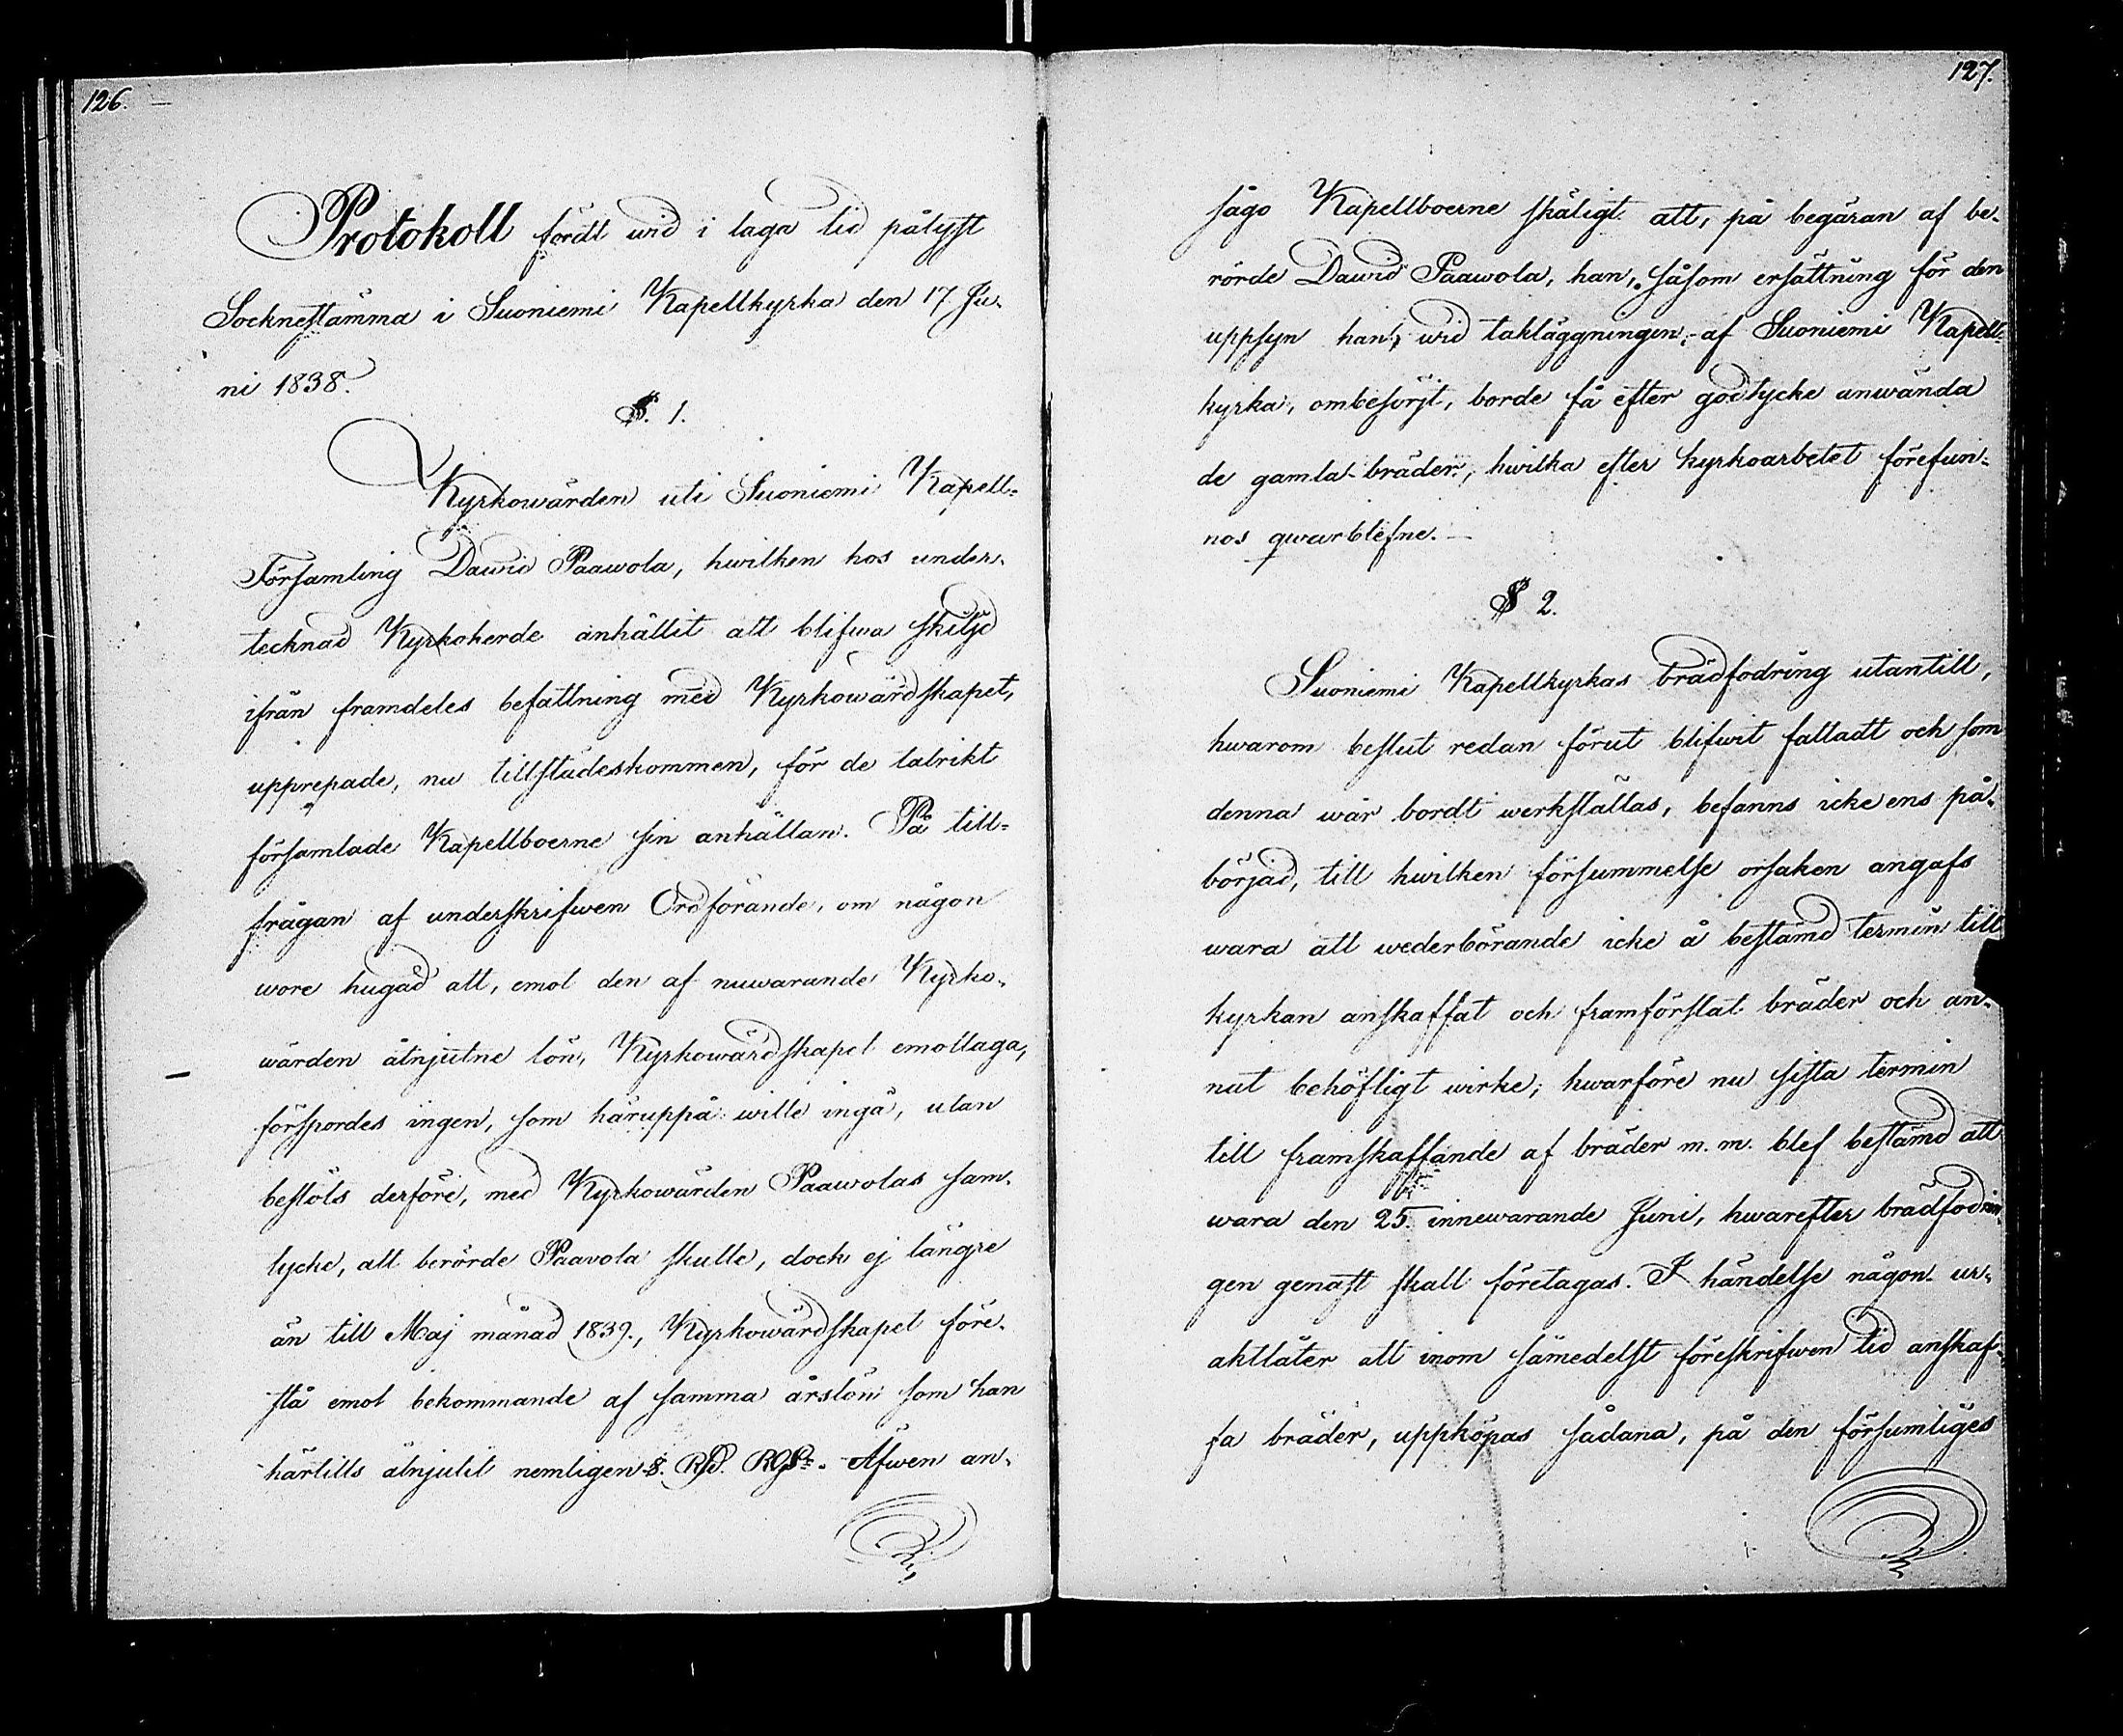 126.
Protokoll fördt wid i laga tid pålyst
Socknestämma i Suoniemi Kapellkyrka den 17. Ju-
ni 1838.
§. 1.
Kyrkowärden uti Suoniemi Kapell-
Församling Dawid Paawola, hwilken hos under-
tecknad Kyrkoherde anhållit att blifwa skiljd
ifrån framdeles befattning med Kyrkowärdskapet,
upprepade, nu tillstädeskommen, för de talrikt
församlade Kapellboerne sin anhållan. På till-
frågan af underskrifwen Ordförande, om någon
wore hugad att, emot den af nuwarande Kyrko-
wärden åtnjutne lön, Kyrkowärdskapet emottaga,
försspordes ingen, som häruppå wille ingå, utan
beslöts derföre, med Kyrkowärden Paawolas sam-
tycke, att berörde Paavola skulle, dock ej längre
än till Maj månad 1839., Kyrkowärdskapet före-
stå emot bekommande af samma årslön som han
härtills åtnjutit nemligen 8. Rbd. RGS. Äfwen an-
127.
sågo Kapellboerne skäligt att, på begäran af be-
rörde Dawid Paawola, han, såsom ersättning för den
uppsyn han, wid takläggningen af Suoniemi Kapell-
kyrka, ombesörjt, borde få efter godtycke anwända
de gamla bräder, hwilka efter kyrkoarbetet förefun-
nos qwarblefne.
§ 2.
Suoniemi Kapellkyrkas brädfodring utantill,
hwarom beslut redan förut blifwit fattadt och som
denna wår bordt werkställas, befanns icke ens på-
börjad, till hwilken försummelse orsaken angafs
wara att wederbörande icke å bestämd termin till
kyrkan anskaffat och framforslat bräder och an-
nat behöfligt wirke; hwarföre nu sista termin
till framskaffande af bräder m. m. blef bestämd att
wara den 25. innewarande Juni, hwarefter brädfodrin-
gen genast skall företagas. I händelse någon ur-
aktlåter att inom sämedelst föreskrifwen tid anskaf-
fa bräder, uppköpas sådana, på den försumliges